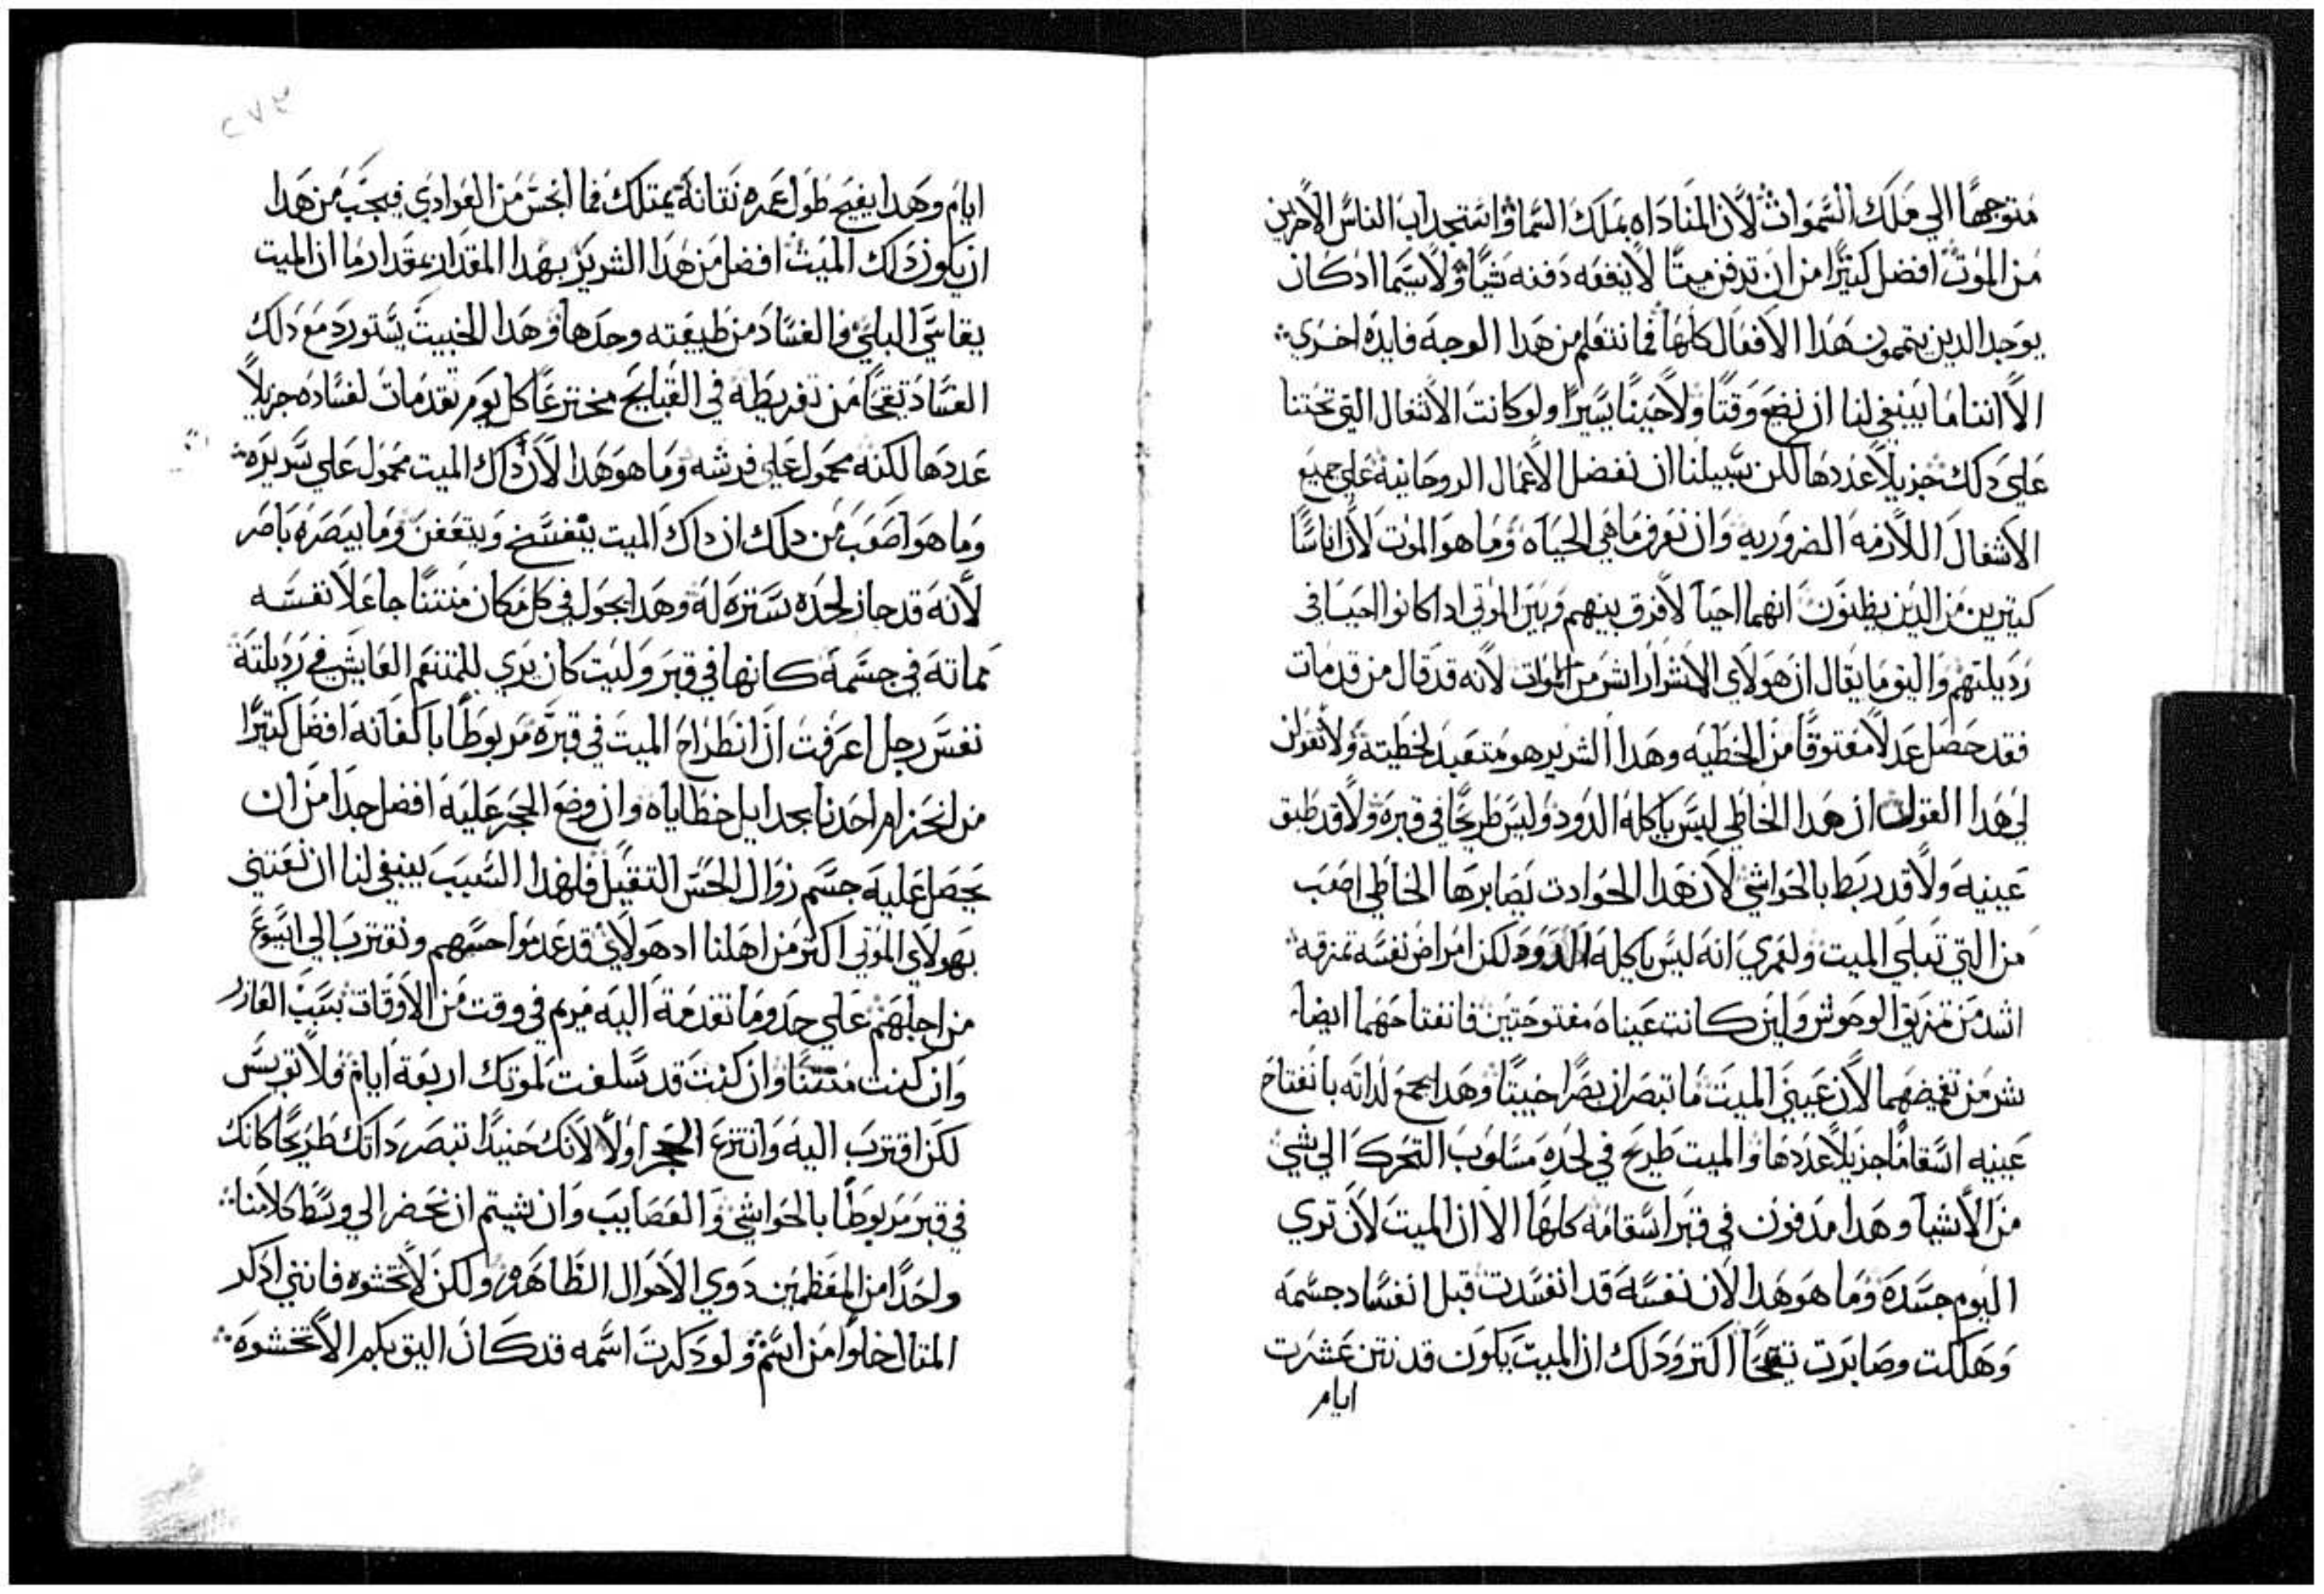 متوجهًا الي ملك السموات لان المناداه بملك السما واستجداب الناس الاخرين
من الموت افضل كتيرًا من ان تدفن ميتًا لا ينفعه دفنه شيًا ولا سيما اد كان
يوجد الدين يتممون هذا الافعال كلها فما نتعلم من هدا الوجه فايده اخري
الا اننا ما ينبغي لنا ان نضيع وقتًا ولا حينًا يسيرًا ولو كانت الاشغال التي تحتنا
علي دلك جزيلاً عددها لكن سبيلنا ان نفضل الاعمال الروحانيه علي جميع
الاشغال اللازمه الضروريه وان نعرف ما هي الحياه وما هو الموت لان اناسًا
كتيرين من الدين يظنون انهما احيا لا فرق بينهم وبين الموتي ادا كانوا احيا في
رديلتهم واليق ما يقال ان هولاي الاشرار اشر من الموات لانه قد قال من قد مات
فقد حصل عدلاً معتوقًا من الخطيه وهدا الشرير هو متعبد لخطيته ولا تقولن
لي هدا القول ان هدا الخاطي ليس ياكله الدود وليس طريحًا في قبره ولا قد طبق
عينيه ولا قد ربط بالحواشي لان هدا الحوادت يصابرها الخاطي اصعب
من التي تعلي الميت ولعمري انه ليس ياكله الدود لكن امراض نفسه تمزقه
اشد من تمزيق الوحوش ولين كانت عيناه مفتوحتين فانفتاحهما ايضا
شر من تغميضهما لان عيني الميت ما تبصران بصرًا خبيتًا وهدا يجمع لداته بانفتاح
عينيه اسقامًا جزيلاً عددها والميت طريح في لحده مسلوب التحرك الي شي
من الاشيا وهدا مدفون في قبر اسقامه كلها الا ان الميت لان تري
اليوم جسده وما هو هدا لان نفسه قد انفسدت قبل انفساد جسمه
وهلكت وصابرت تقيحًا اكتر ودلك ان الميت يكون قد نتن عشرت
ايام
٢٧٣
ايام وهدا يفيح طول عمره نتانة يمتلك فما انجس من العوادي فيجب من هدا
ان يكون داك الميت افضل من هدا الشرير بهدا المقدار بمقدار ما ان الميت
يقاسي البلي والفساد من طبيعته وحدها وهدا الخبيت يستورد مع دلك
الفساد تقيحًا من تفريطه في القبايح مخترعًا كل يوم تقدمات لفساده جزيلاً
عددها لكنه محمول علي فرشه وما هو هدا لان داك الميت محمول علي سريره
وما هو اصعب من دلك ان داك الميت يتفسخ ويتعفن وما يبصره باصر
لانه قد حاز لحده ستره له وهدا يجول في كل مكان منتنًا جاعلاً نفسه
مماته في جسمه كانها في قبر وليت كان يري للمتنعم العايش في رديلته
نفس رجل اعرفت ان انطراح الميت في قبره مربوطًا باكفانه افضل كتيرًا
من انحزام احدنا بجدايل خطاياه وان وضع الحجر عليه افضل جدا من ان
يحصل عليه جسم زوال الحس التقيل فلهدا السبب ينبغي لنا ان نعتني
بهولاي الموتي اكتر من اهلنا اد هولاي قد عدموا احسهم ونقترب الي ايسوع
من اجلهم علي حد وما تقدمة اليه مريم في وقت من الاوقات بسبب العازر
وان كنت منتنًا وان كنت قد سلفت لموتك اربعة ايام فلا توبس
لكن اقترب اليه وانتزع الحجر اولاً لانك حنيدا تبصر داتك طريحًا كانك
في قبر مربوطًا بالحواشي والعصايب وان شيتم ان نحضر الي وسط كلامنا
واحدًا من المعظمين دوي الاحوال الظاهره ولكن لا تخشوه فانني ادكر
المتال خلوًا من اسم ولو دكرت اسمه قد كان اليق بكم الا تخشوه